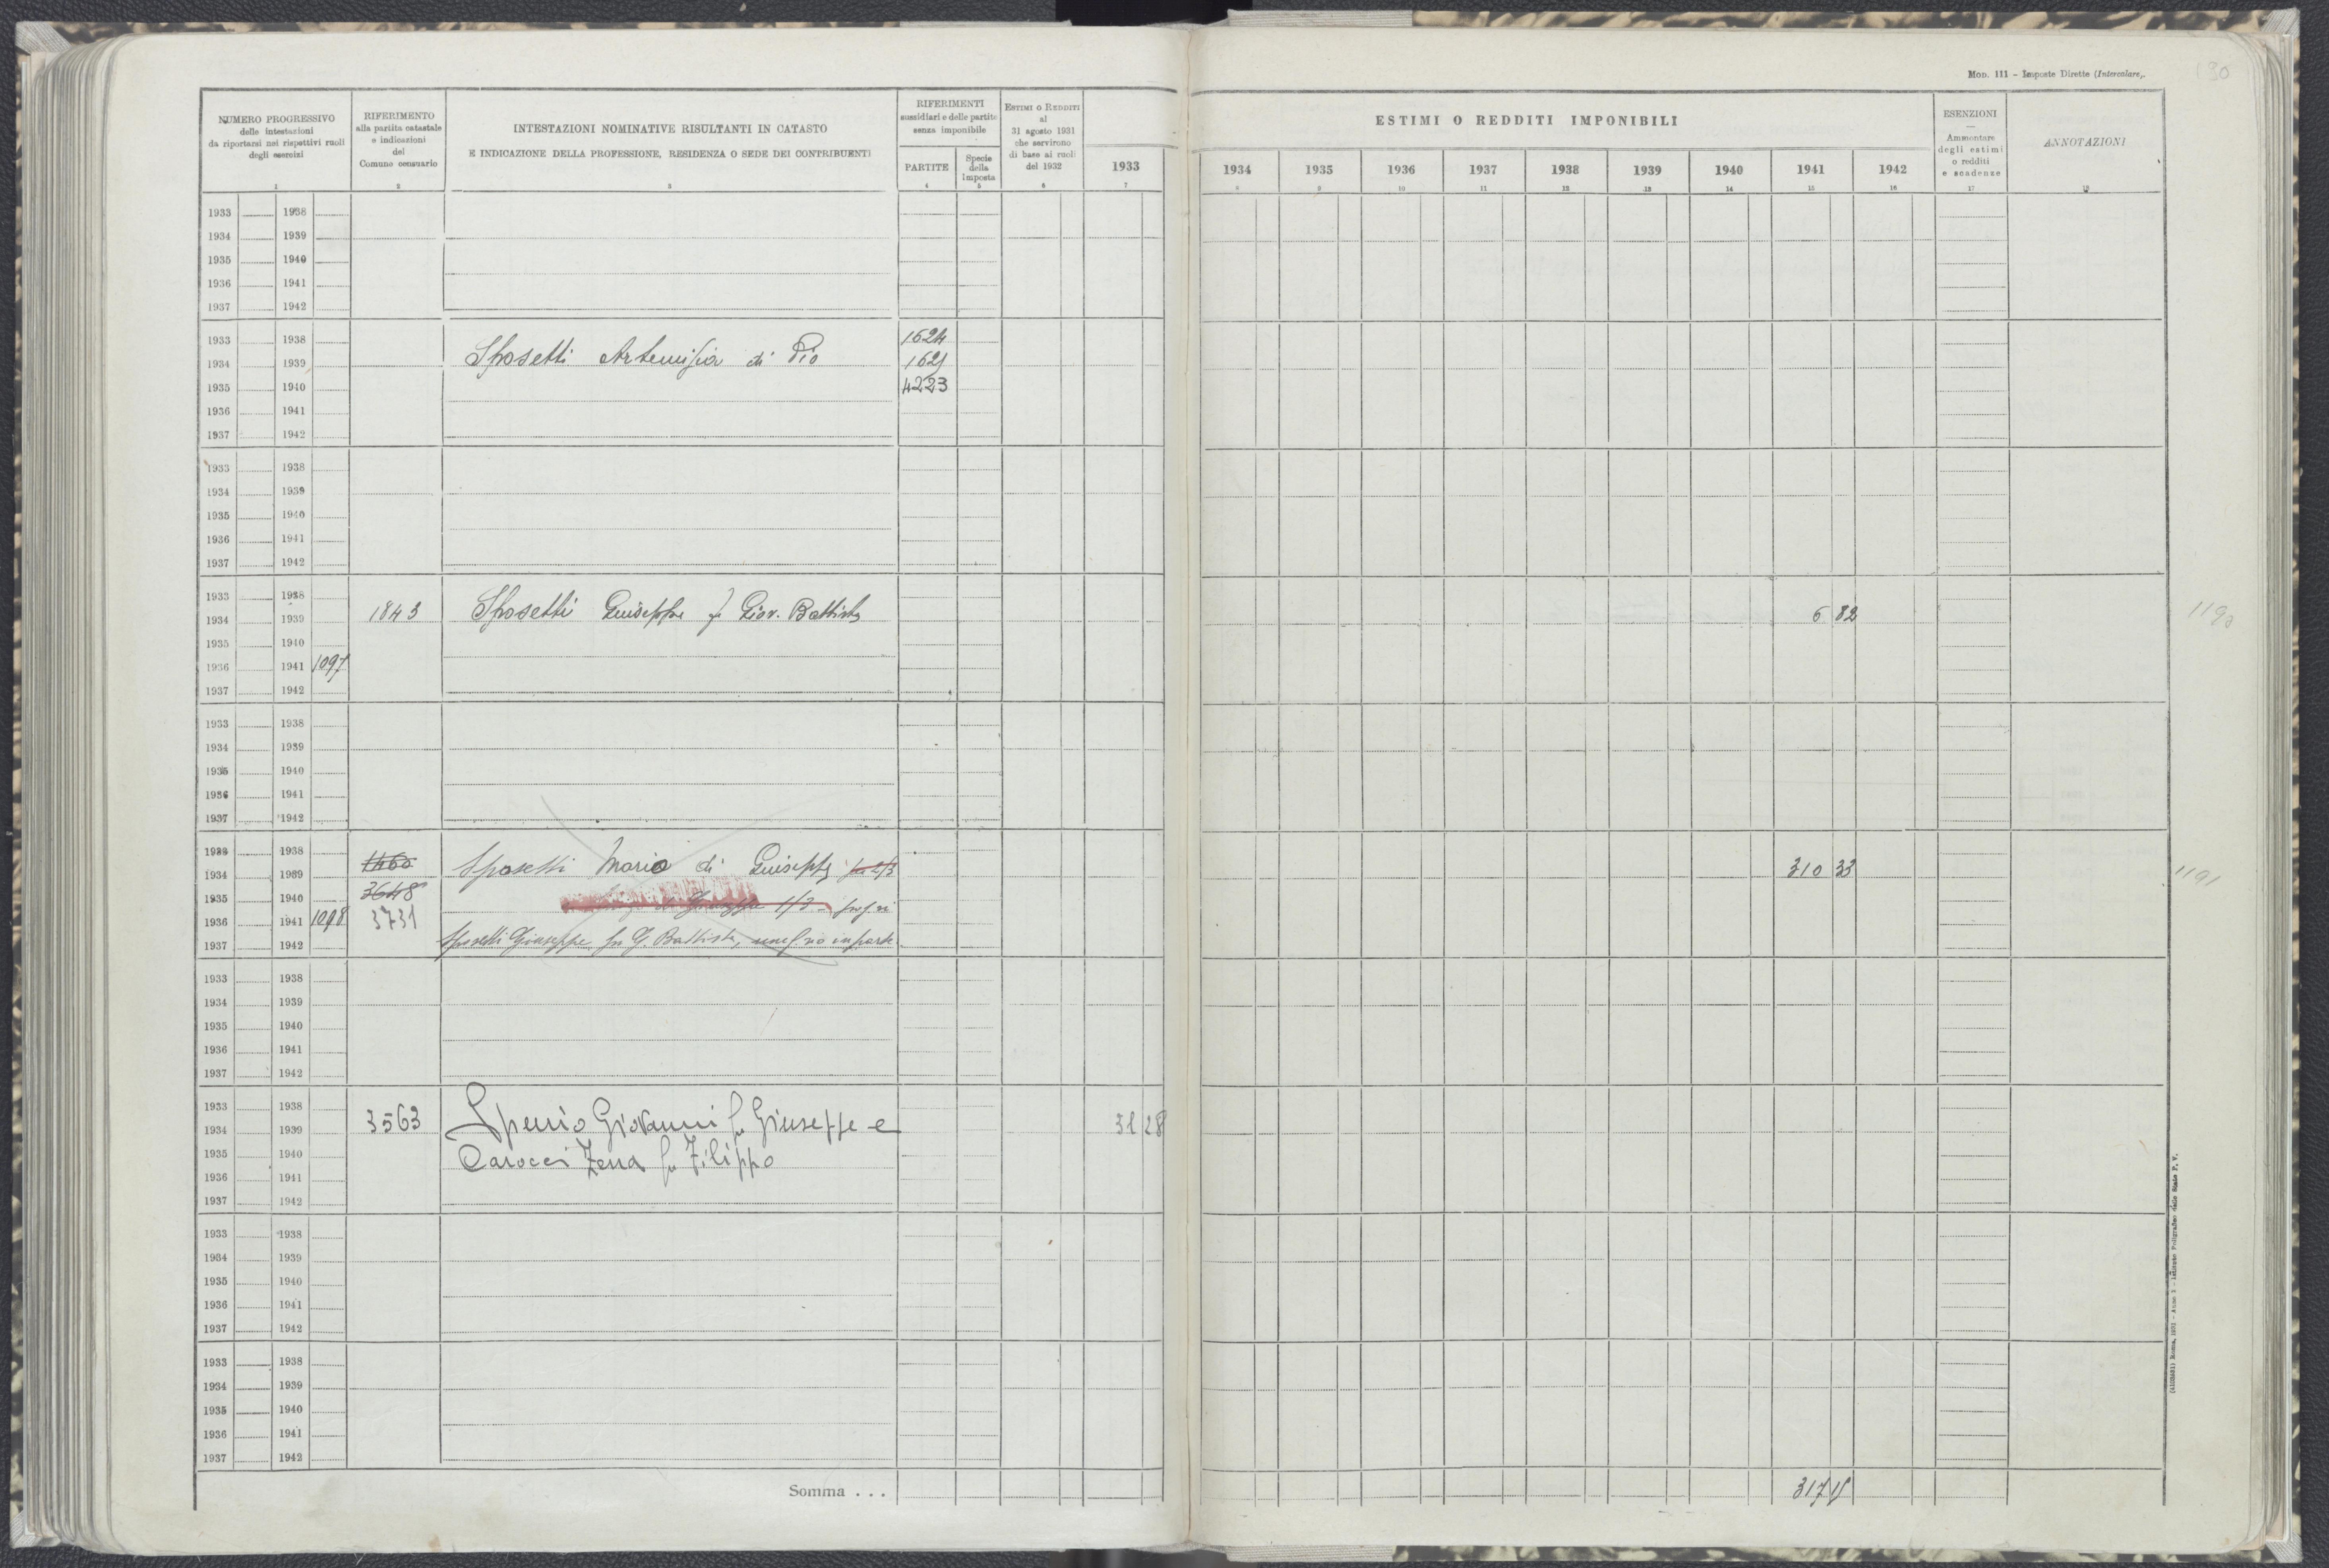 Mod. 111 - Imposte Dirette (Intercalare).
190
NUMERO PROGRESSIVO
delle intestazioni
da riportarsi nei rispettivi ruoli
degli esercizi
1
RIFERIMENTO
alla partita catastale
e indicazioni
del
Comune censuario
2
INTESTAZIONI NOMINATIVE RISULTANTI IN CATASTO
E INDICAZIONE DELLA PROFESSIONE, RESIDENZA O SEDE DEI CONTRIBUENTI
3
RIFERIMENTI
sussidiari e delle partite
senza imponibile
PARTITE
4
Specie
della
Imposta
5
ESTIMI O REDDITI
al
31 agosto 1931
che servirono
di base ai ruoli
del 1932
6
1933
7
ESTIMI O REDDITI IMPONIBILI
1934 1935 1936 1937 1938 1939 1940 1941 1942
8 9 10 11 12 13 14 15 16
ESENZIONI
Ammontare
degli estimi
o redditi
e scadenze
17
ANNOTAZIONI
18
1933 1938
1934 1939
1935 1940
1936 1941
1937 1942
1933 1938 1624
1934 1939 Sposetti Artemisia di Pio
1935 1940 4223
1936 1941
1937 1942
1933 1938
1934 1939
1935 1940
1936 1941
1937 1942
1933 1938
1934 1939 1843 Sposetti Giuseppe fu Giov. Battista 6 82
1935 1940
1936 1941 1097
1937 1942
1933 1938
1934 1939
1935 1940
1936 1941
1937 1942
1933 1938 1460
1934 1939 Sposetti Mario di Giuseppe per 2/3 310 33 1191
1935 1940 3648
1936 1941 1098 3731 di Giuseppe 1/3 - propri
1937 1942 Sposetti Giuseppe fu G. Battista, usuf.rio in parte
1933 1938
1934 1939
1935 1940
1936 1941
1937 1942
1933 1938
1934 1939 3563 Giovanni fu Giuseppe e 31 28
1935 1940 Carocci fu Filippo
1936 1941
1937 1942
1933 1938
1934 1939
1935 1940
1936 1941
1937 1942
1933 1938
1934 1939
1935 1940
1936 1941
1937 1942
Somma . . . 317 15
Roma, 1931 - Anno X - Istituto Poligrafico dello Stato P. V.